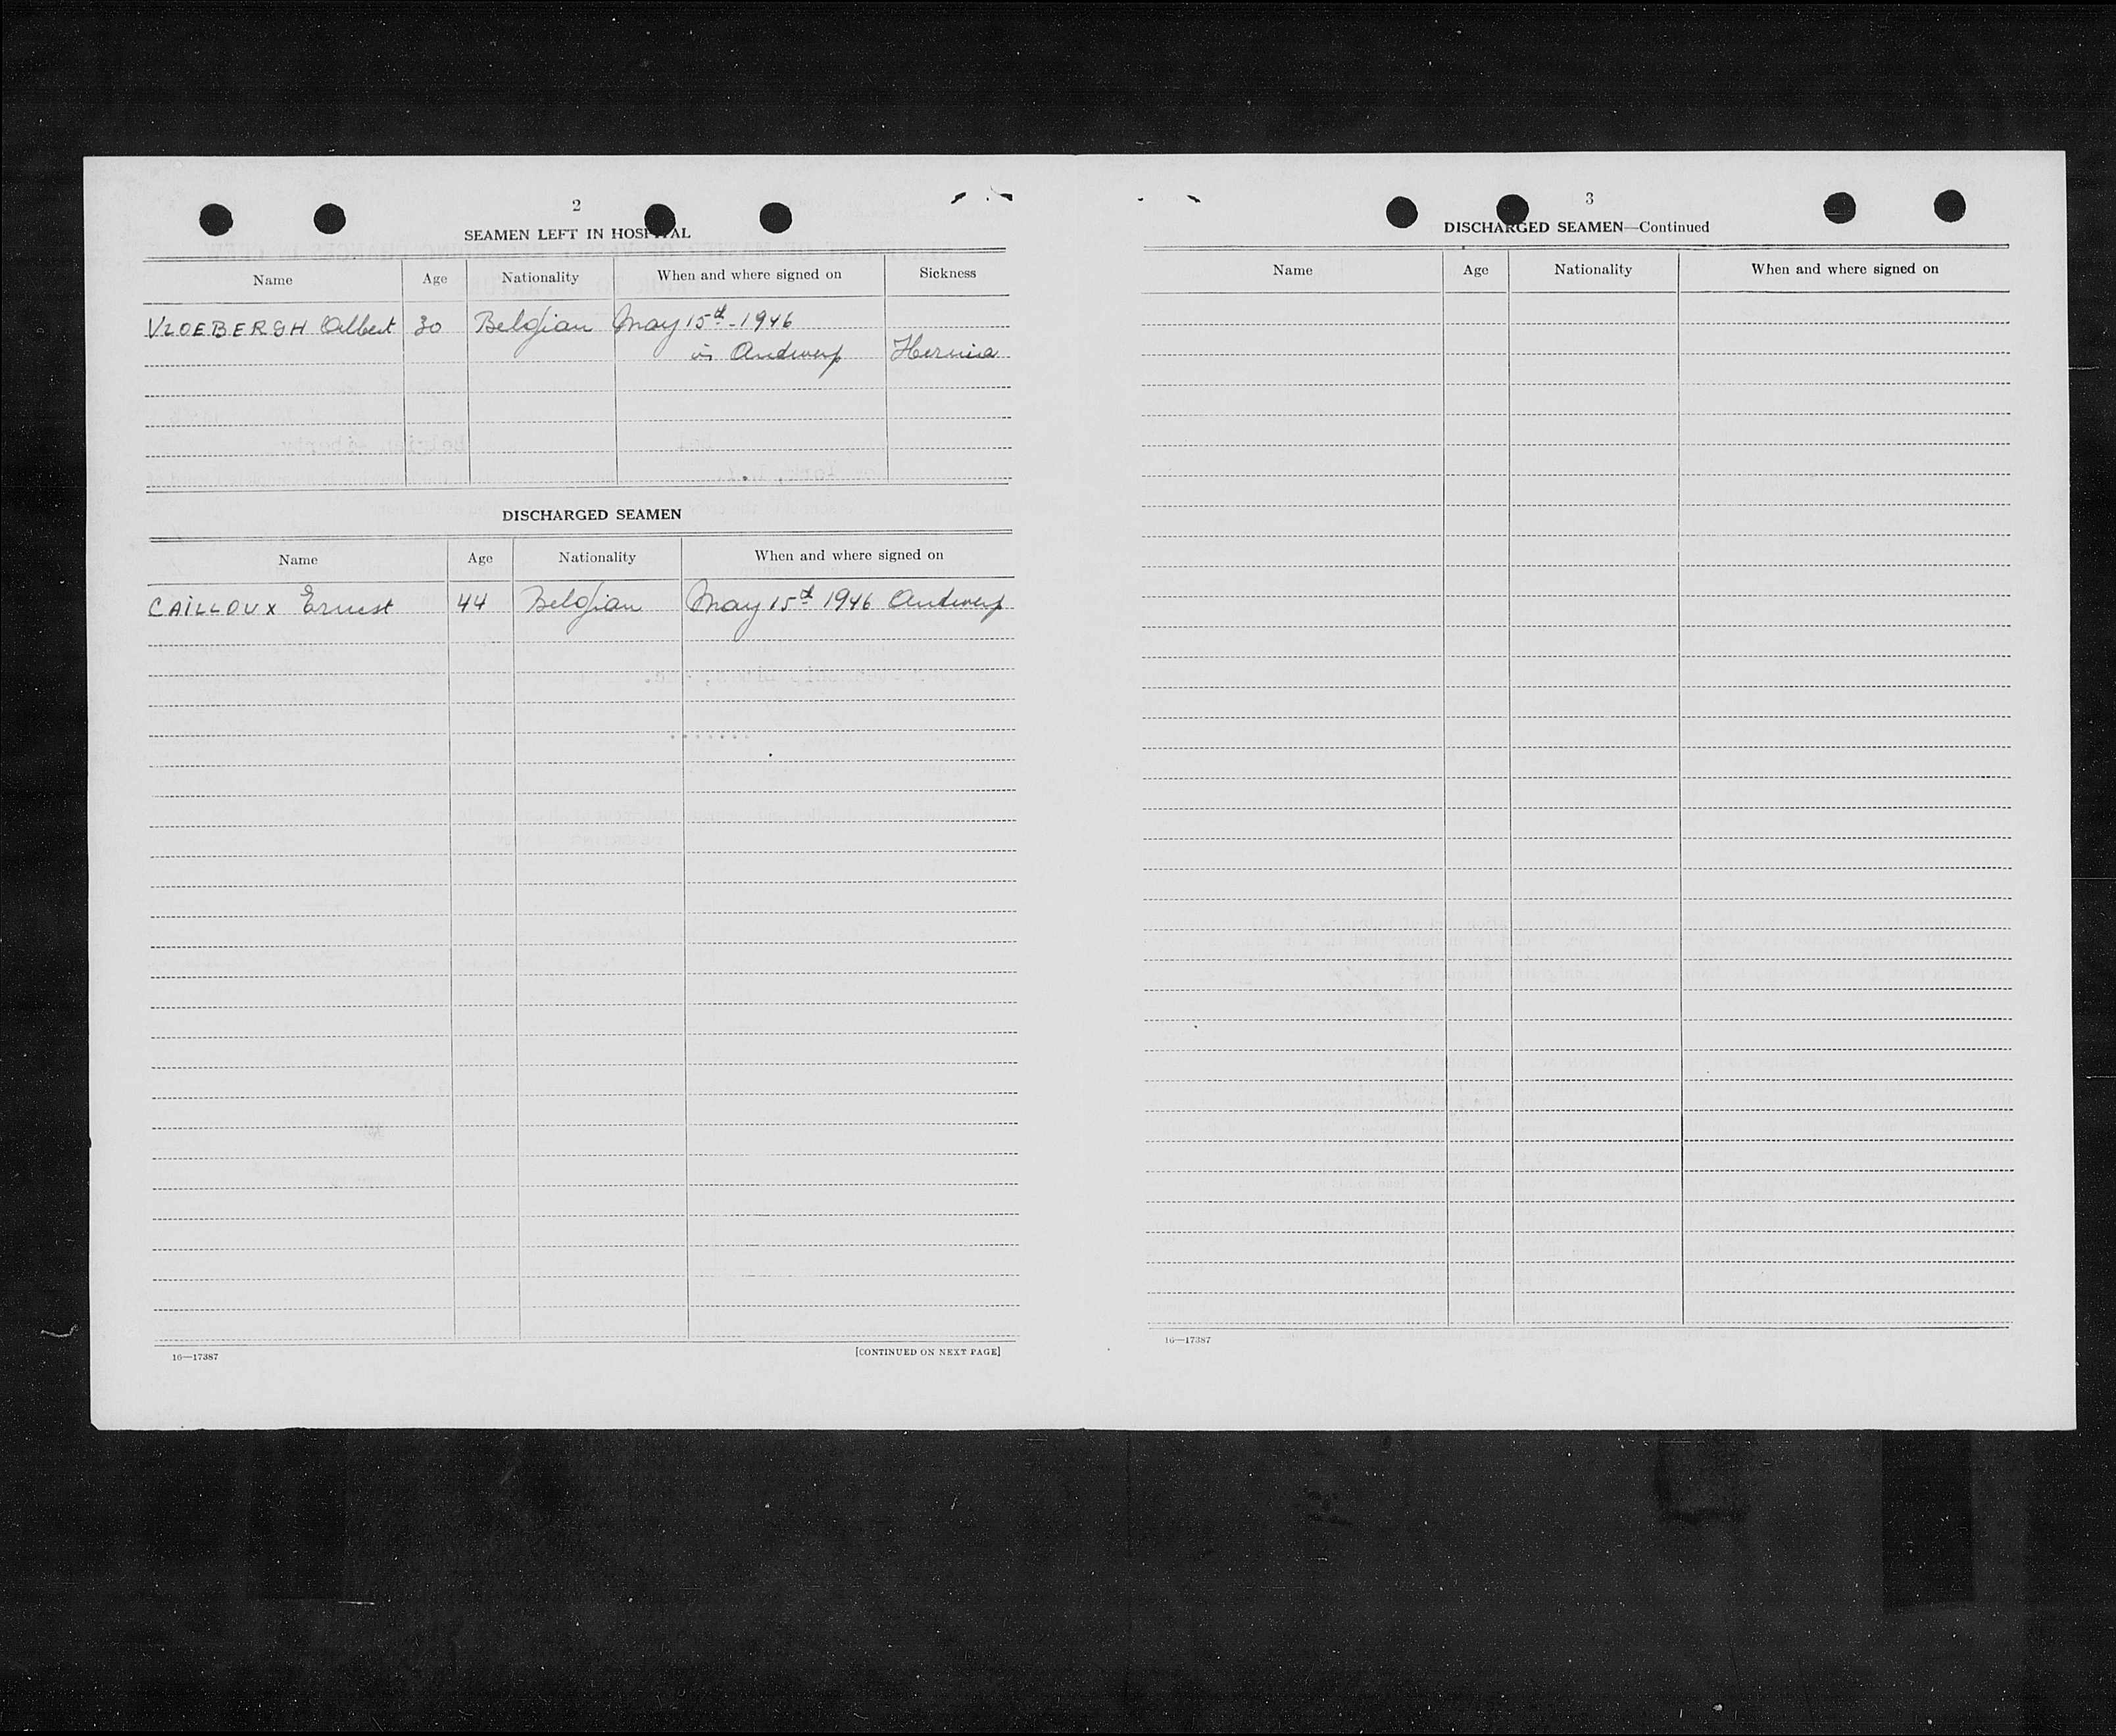 2
SEAMEN LEFT IN HOSPITAL
Name Age Nationality When and where signed on Sickness
VLOEBERGH Albert 30 Belgian May 15th - 1946
in Antwerp Hernia
DISCHARGED SEAMEN
Name Age Nationality When and where signed on
CAILLOUX Ernest 44 Belgian May 15th 1946 Antwerp
16—17387 [CONTINUED ON NEXT PAGE]
3
DISCHARGED SEAMEN—Continued
Name Age Nationality When and where signed on
16—17387